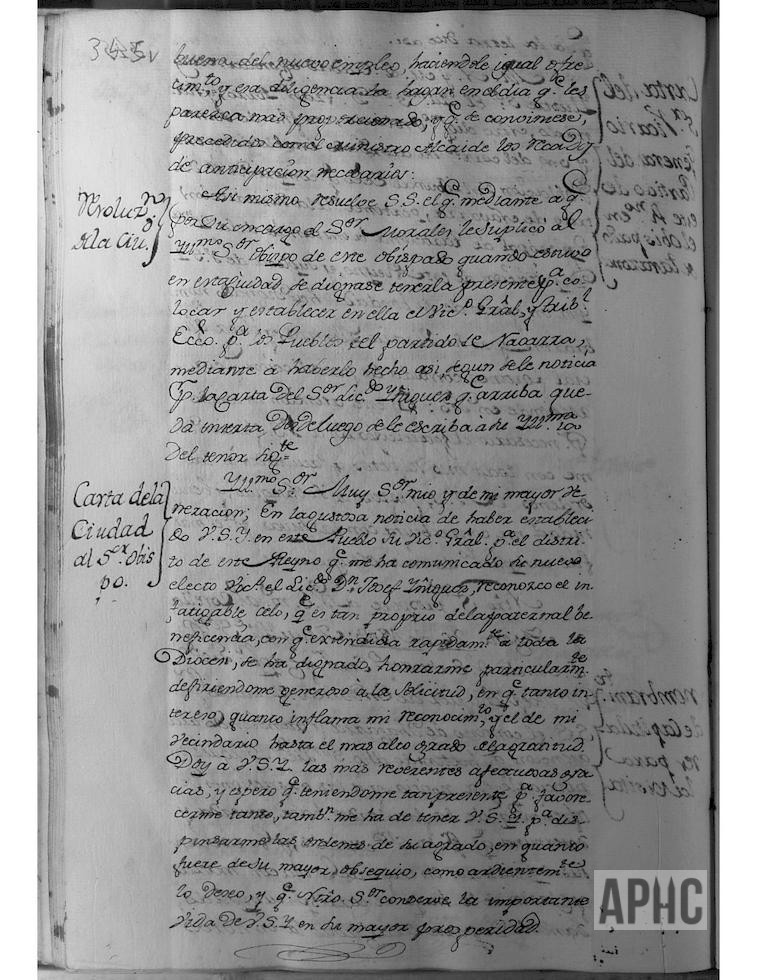 345v
buena del nuevo empleo, haciendole igual ofre-
cim.to y esa diligencia la hagan en el dia q.e les
parezca mas proporcionado, y q.e se conviniese,
precedidos con el Ministro Alcaide los recados
de anticipacion necesarios.
Resoluz.n
de la Ciu.d
Asi mismo resuelve S.S. el q.e mediante a q.e
por su encargo al S.or Morales le suplicó al
Yll.mo S.or Obispo de este obispado quando estuvo
en esta Ciudad se dignase tenerla presente p.a co-
locar y establecer en ella el Vic.o Gral, y Trib.l
Ecco. p.a los Pueblos del partido de Navarra,
mediante a haberlo hecho asi, segun se le noticia
p. la carta del S.or Lic.do Yñiguez q.e arriba que-
da inserta desde luego se le escriba a su Yll.ma la
del tenor sig.te
Carta de la
Ciudad
al S.or Obis
po.
Yll.mo S.or Muy S.or mio y de mi mayor ve-
neracion; En la gustosa noticia de haber estableci-
do V.S.Y. en este Pueblo su Vic.o Gral. p.a el distri-
to de este Reyno q.e me ha comunicado su nuevo
electo Vic.o el Lic.do D.n Josef Yñiguez, reconozco el in-
fatigable celo, q.e es tan proprio de la paternal be-
neficencia, con q.e extendida rapidam.te a toda la
Diocesi, se ha dignado, honrarme particularm.te
defiriendome generoso à la solicitud, en q.e tanto in-
tereso, quanto inflama mi reconocim.to, y el de mi
vecindario hasta el mas alto grado de la gratitud.
Doy à V.S.Y. las mas reverentes afectuosas gra-
cias, y espero q.e teniendome tan presente p.a favore-
cerme tanto, tamb.n me ha de tener V.S.Y. p.a dis-
pensarme las ordenes de su agrado, en quanto
fuere de su mayor obsequio, como ardientem.te
lo deseo, y q.e Ntro. S.or conserve la importante
vida de V.S.Y en su mayor prosperidad.
APHC